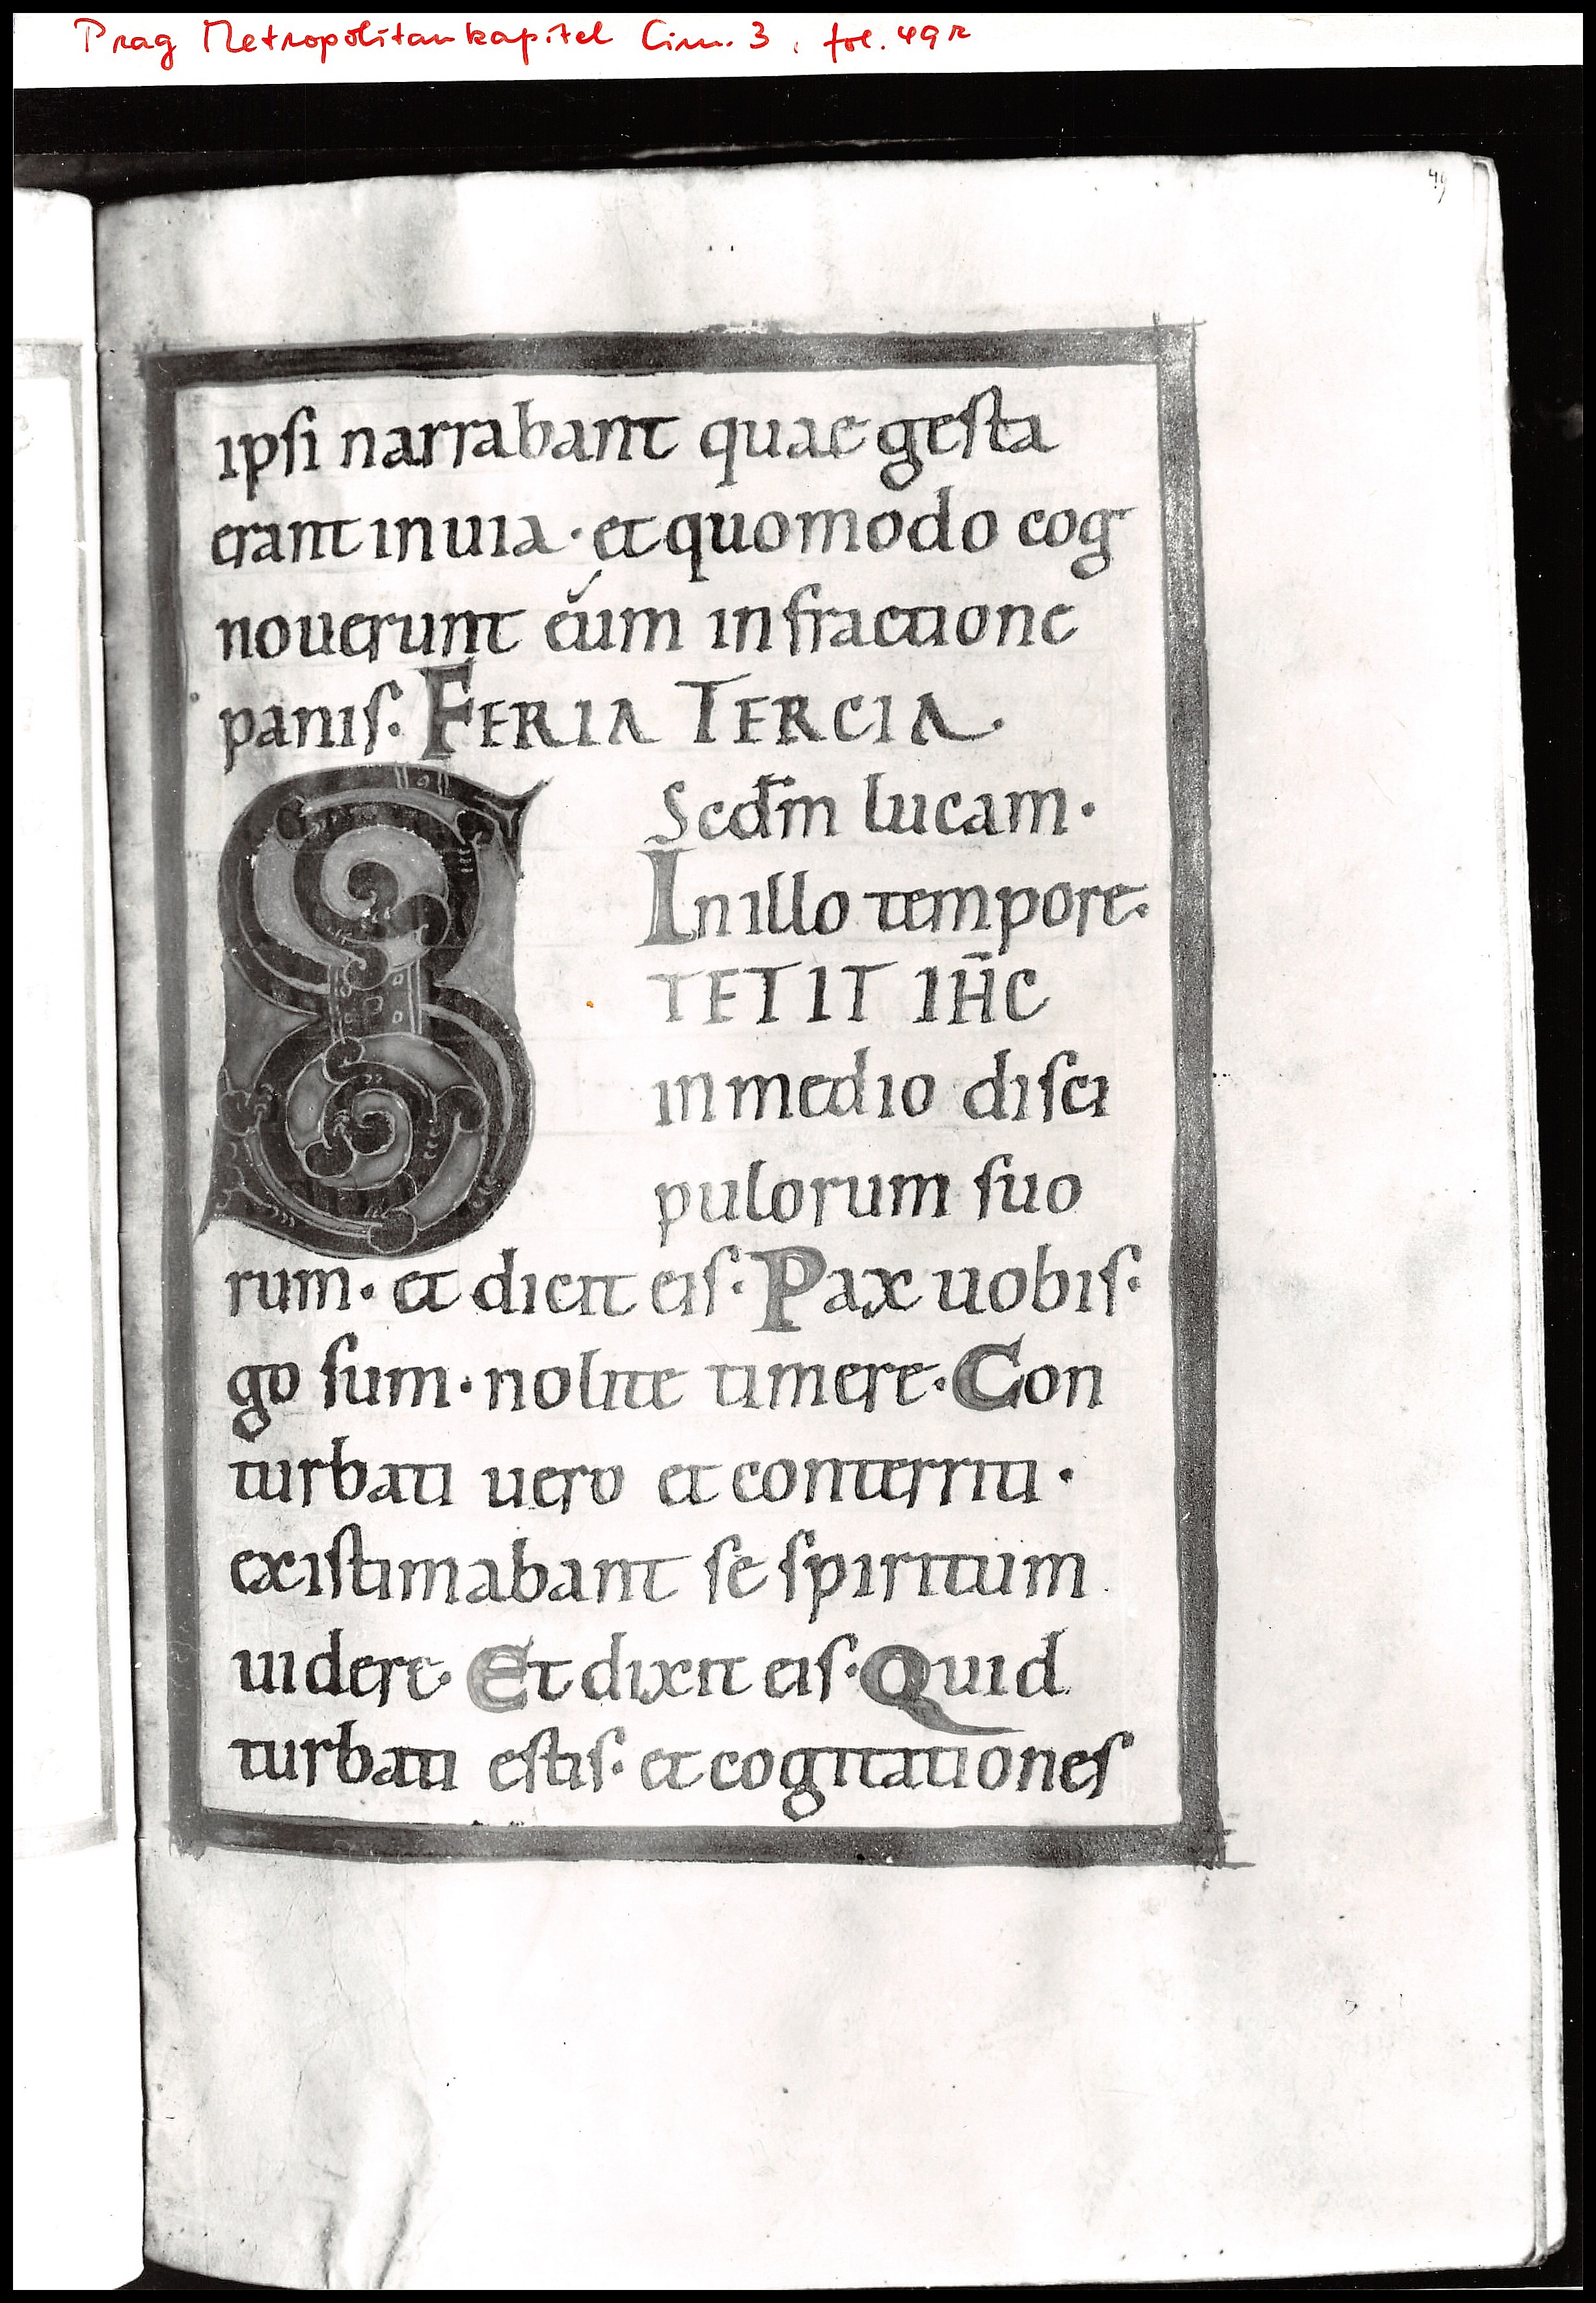 Prag Metropolitankapitel Cim. 3, fol. 49r
49
ipsi narrabant quae gesta
erant in uia · et quomodo cog
nouerunt eum in fractione
panis. FERIA TERCIA.
Scdm lucam.
In illo tempore.
STETIT IHC
in medio disci
pulorum suo
rum. et dicit eis. Pax uobis.
go sum. nolite timere. Con
turbati uero et conterriti.
existimabant se spiritum
uidere. Et dixit eis. Quid
turbati estis. et cogitationes